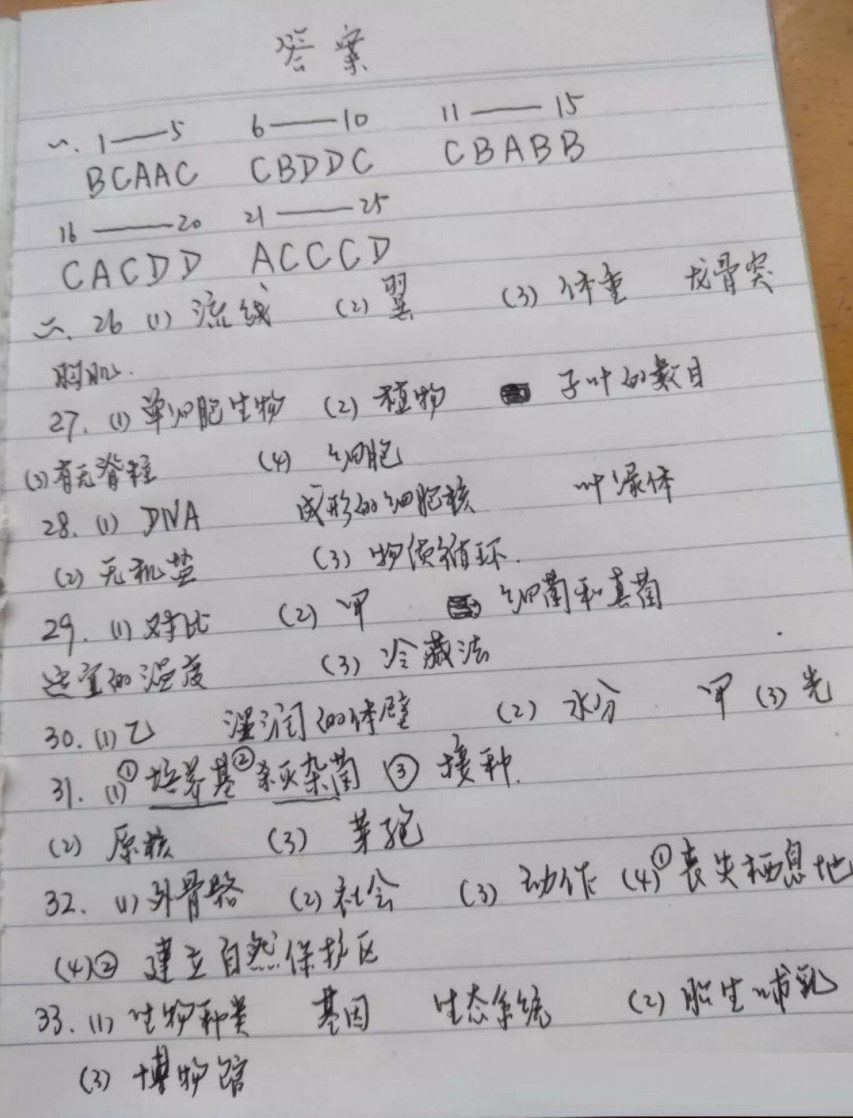 答案
一、1——5 6——10 11——15
BCAAC CBDDC CBABB
16——20 21——25
CACDD ACCCD
二、26 (1) 流线 (2) 翼 (3) 体重 龙骨突
胸肌.
27. (1) 单细胞生物 (2) 植物 子叶的数目
(3) 有无脊柱 (4) 细胞
28. (1) DNA 成形的细胞核 叶绿体
(2) 无机盐 (3) 物质循环.
29. (1) 对比 (2) 甲 细菌和真菌
适宜的温度 (3) 冷藏法
30. (1) 乙 湿润的体壁 (2) 水分 甲 (3) 光
31. (1) ① 培养基 ② 杀灭杂菌 ③ 接种.
(2) 原核 (3) 芽孢
32. (1) 外骨骼 (2) 社会 (3) 动作 (4) ① 丧失栖息地
(4) ② 建立自然保护区
33. (1) 生物种类 基因 生态系统 (2) 胎生哺乳
(3) 博物馆